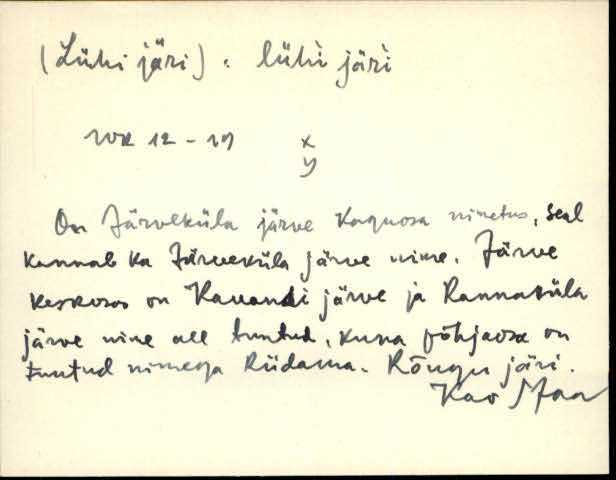 (Lühi järi) : lühi järi
x
y
On Järveküla järve kaguosa nimetus, seal
kannab ka Järveküla järve nime. Järve
keskosas on Kauandi järve ja Rannaküla
järve nime all tuntud, kuna põhjaosa on
tuntud nimega Riidama. Rõngu järi.